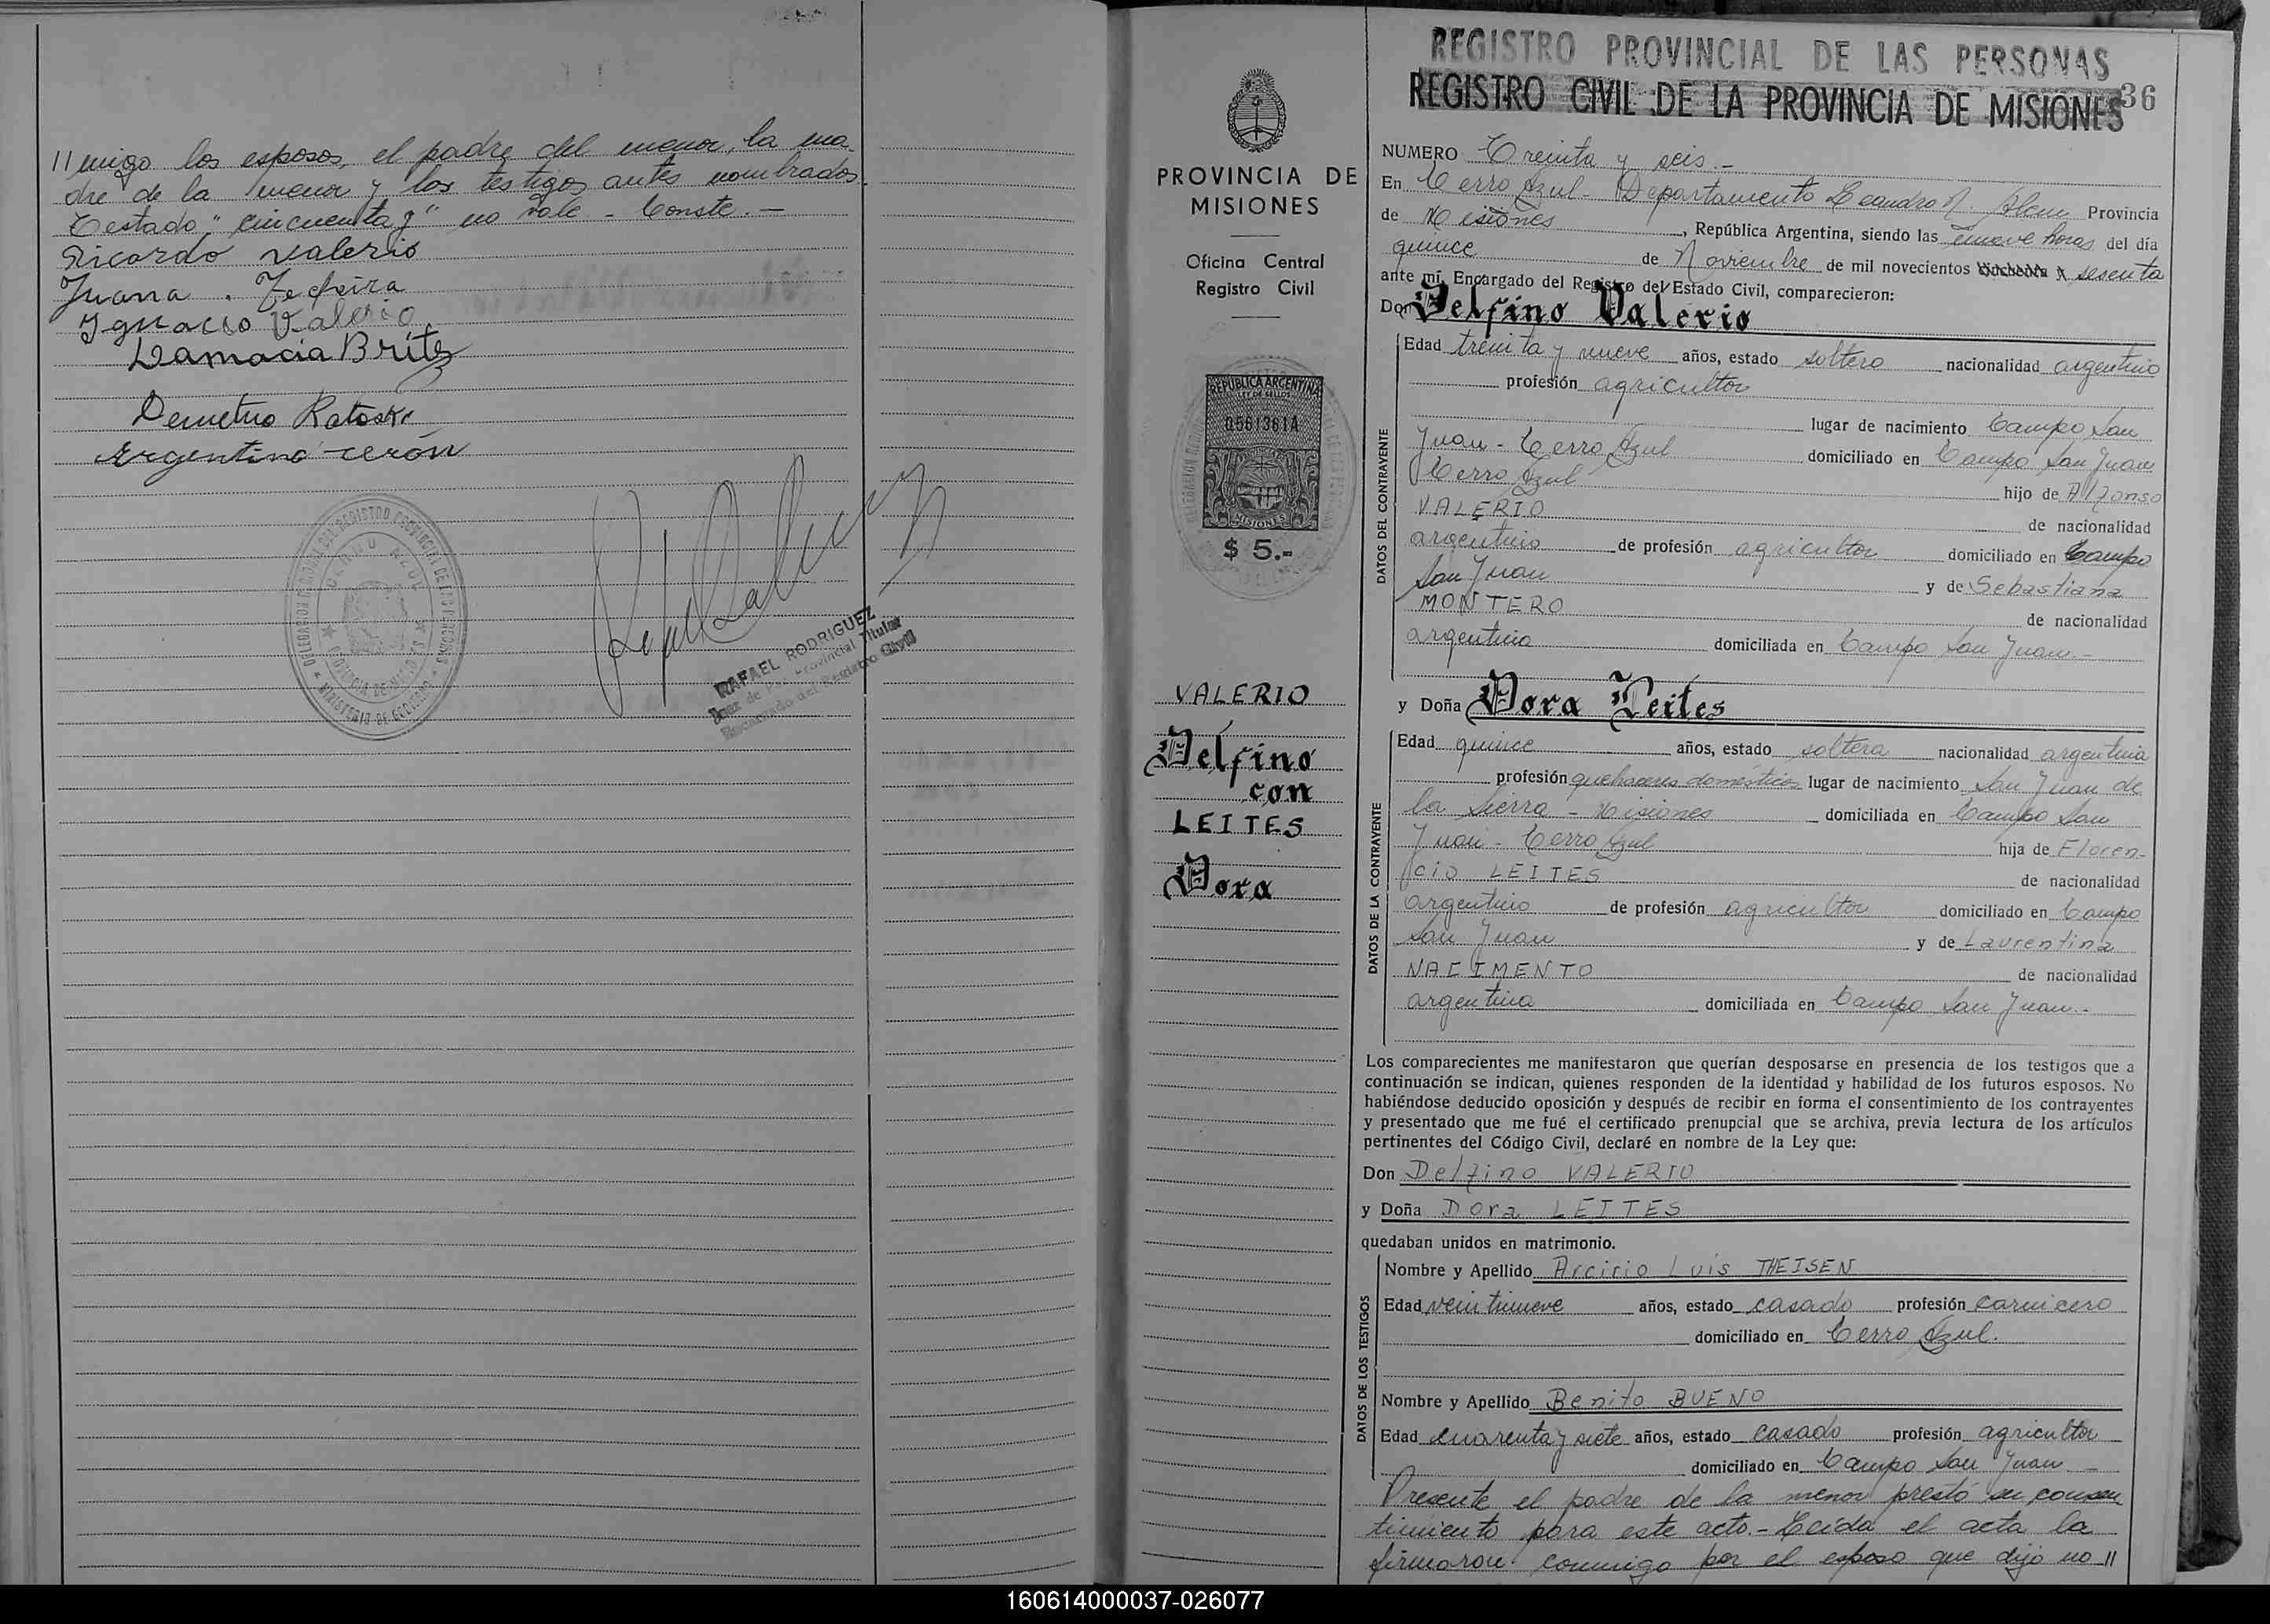 //migo los esposos, el padre del menor, la ma-
dre de la menor y los testigos antes nombrados.
Testado "cincuenta y" no vale - Conste.-
Ricardo Valerio
Juana . Tedeira
Ignacio Valerio
Damacia Britez
Demetrio Ratoski
Argentino Cerón
RAFAEL RODRIGUEZ
Juez de Paz Provincial Titular
Encargado del Registro Civil
PROVINCIA DE
MISIONES
Oficina Central
Registro Civil
REPUBLICA ARGENTINA
LEY DE SELLOS
MISIONES
$ 5.-
VALERIO
Delfino
con
LEITES
Dora
REGISTRO PROVINCIAL DE LAS PERSONAS
REGISTRO CIVIL DE LA PROVINCIA DE MISIONES
36
NUMERO Treinta y seis.-
En Cerro Azul - Departamento Leandro N. Alem Provincia
de Misiones, República Argentina, siendo las nueve horas del día
quince de Noviembre de mil novecientos cincuenta y sesenta
ante mí, Encargado del Registro del Estado Civil, comparecieron:
Don Delfino Valerio
DATOS DEL CONTRAYENTE
Edad treinta y nueve años, estado soltero nacionalidad argentino
profesión agricultor
lugar de nacimiento Campo San
Juan - Cerro Azul domiciliado en Campo San Juan
Cerro Azul hijo de Alfonso
VALERIO de nacionalidad
argentino de profesión agricultor domiciliado en Campo
San Juan y de Sebastiana
MONTERO de nacionalidad
argentina domiciliada en Campo San Juan.-
y Doña Dora Leites
DATOS DE LA CONTRAYENTE
Edad quince años, estado soltera nacionalidad argentina
profesión quehaceres domésticos lugar de nacimiento San Juan de
la Sierra - Misiones domiciliada en Campo San
Juan - Cerro Azul hija de Floren-
cio LEITES de nacionalidad
argentino de profesión agricultor domiciliado en Campo
San Juan y de Laurentina
NACIMENTO de nacionalidad
argentina domiciliada en Campo San Juan.-
Los comparecientes me manifestaron que querían desposarse en presencia de los testigos que a
continuación se indican, quienes responden de la identidad y habilidad de los futuros esposos. No
habiéndose deducido oposición y después de recibir en forma el consentimiento de los contrayentes
y presentado que me fué el certificado prenupcial que se archiva, previa lectura de los artículos
pertinentes del Código Civil, declaré en nombre de la Ley que:
Don Delfino VALERIO
y Doña Dora LEITES
quedaban unidos en matrimonio.
DATOS DE LOS TESTIGOS
Nombre y Apellido Arcirio Luis THEISEN
Edad veintinueve años, estado casado profesión carnicero
domiciliado en Cerro Azul.
Nombre y Apellido Benito BUENO
Edad cuarenta y siete años, estado casado profesión agricultor
domiciliado en Campo San Juan -
Presente el padre de la menor prestó su consen
timiento para este acto.- Leída el acta la
firmaron conmigo por el esposo que dijo no //
160614000037-026077